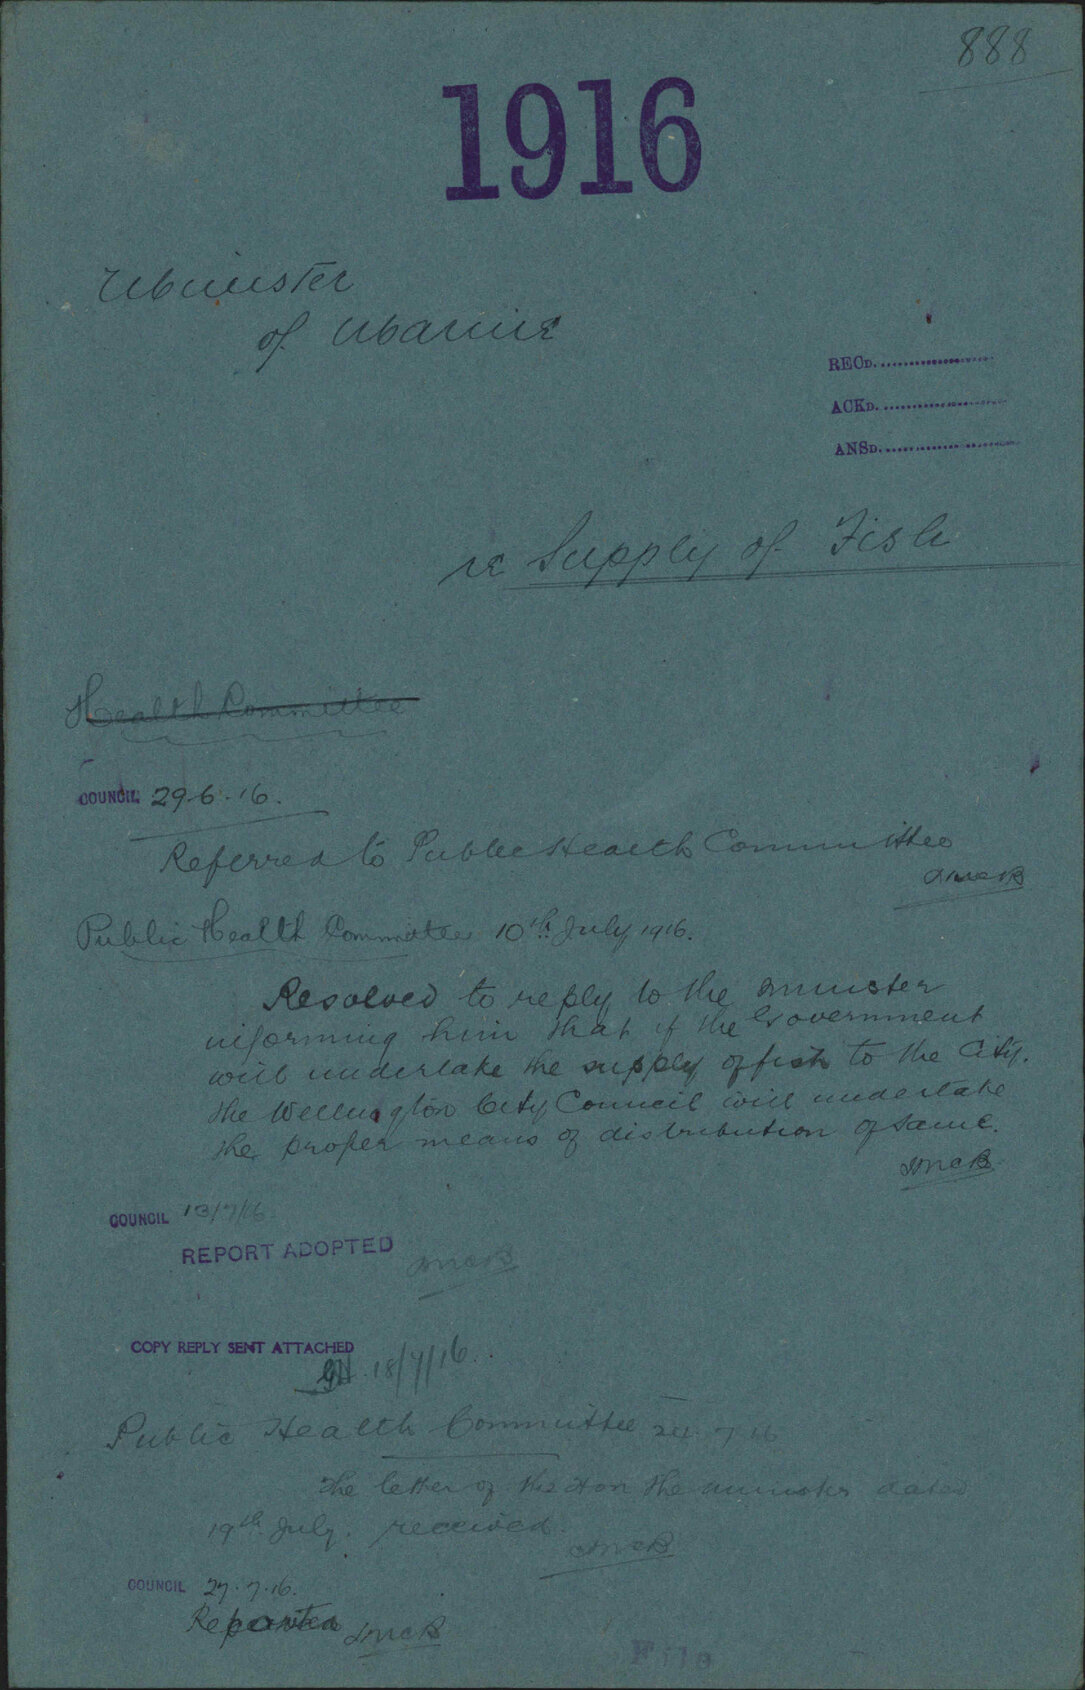 888
1916
Minister
of Marine
RECD.
ACKD.
ANSD.
re Supply of Fish
Health Committee
COUNCIL 29.6.16.
Referred to Public Health Committee
JMcB
Public Health Committee 10th July 1916.
Resolved to reply to the Minister
informing him that if the Government
will undertake the supply of fish to the City.
the Wellington City Council will undertake
the proper means of distribution of same.
JMcB
COUNCIL 13/7/16
REPORT ADOPTED JMcB
COPY REPLY SENT ATTACHED
18/7/16.
Public Health Committee 24.7.16
The letter of the Hon the Minister dated
19th July. received.
JMcB
COUNCIL 27.7.16.
Reported JMcB
File